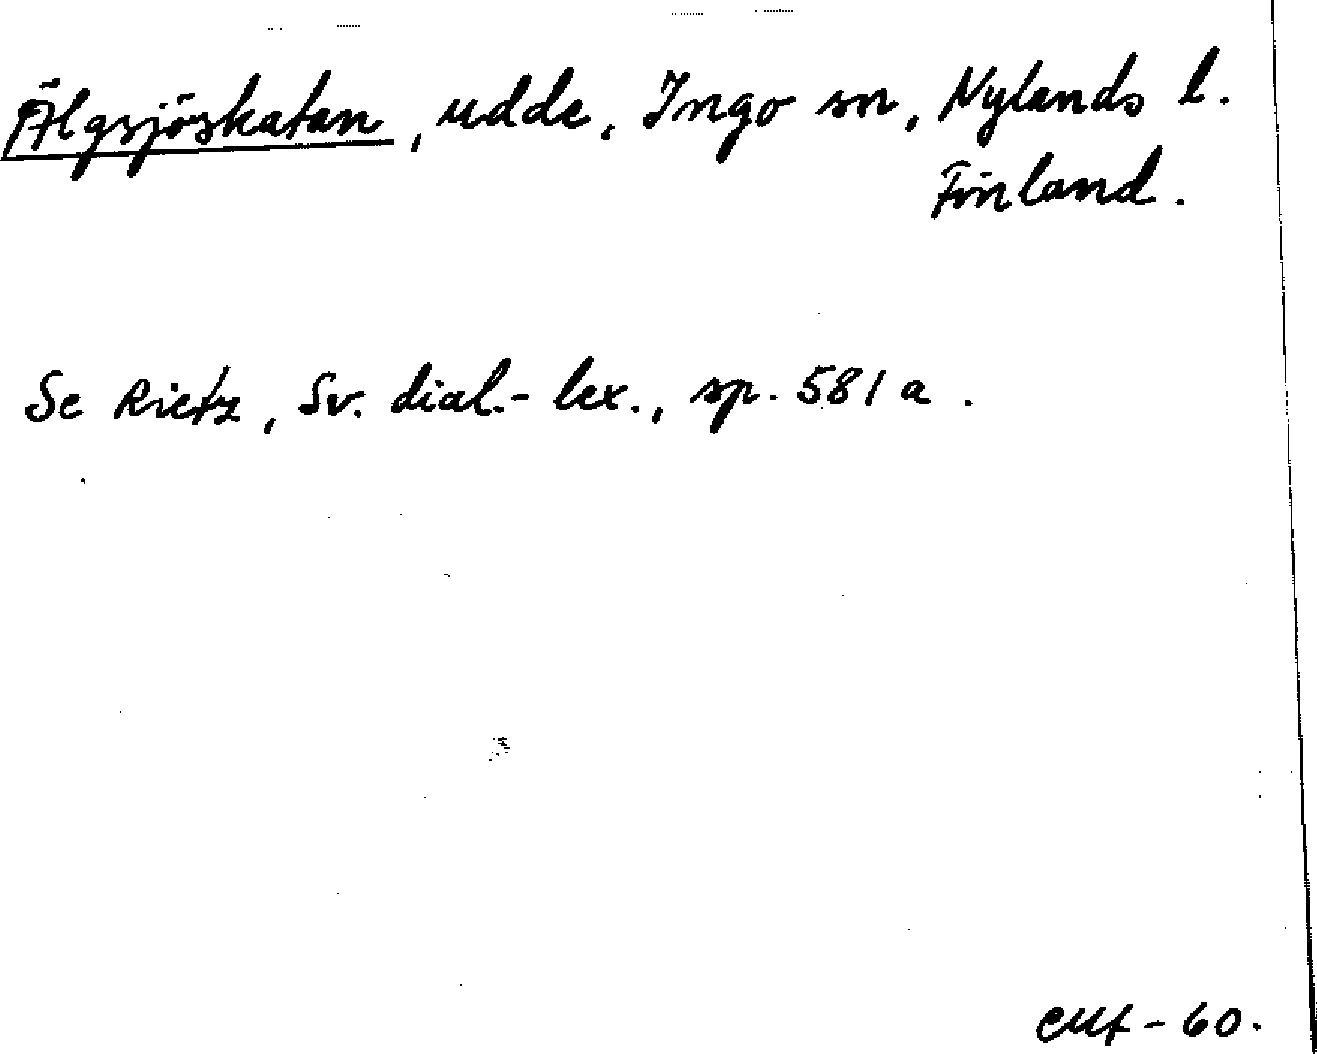 Älgsjöskatan, udde, Ingo sn, Nylands l.
Finland.
Se Rietz, Sv. dial.-lex., sp. 581 a.
CMf-60.